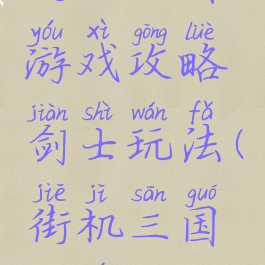 yóu xì gōng lüè
游戏攻略
jiàn shì wán fǎ
剑士玩法(
jiē jī sān guó
街机三国